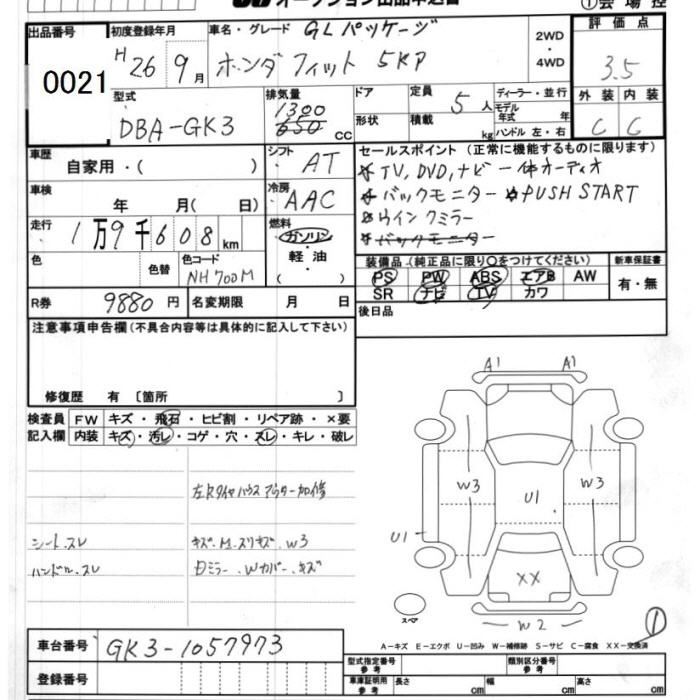 オークション出品申込書
①会場控
出品番号
0021
初度登録年月
H26 9月
車名・グレード GLパッケージ
ホンダ フィット 5KP
2WD
・
4WD
評価点
3.5
外装 内装
C C
型式
DBA-GK3
排気量
1300
650 cc
ドア
形状
定員 5人
積載 kg
ディーラー・並行
モデル
年式 年
ハンドル 左・右
車歴
自家用・( )
シフト AT
セールスポイント (正常に機能するものに限ります)
☆TV, DVD, ナビ 一体オーディオ
☆バックモニター ☆PUSH START
☆ウインクミラー
☆バックモニター
車検
年 月( 日)
冷房 AAC
走行
1万9千608km
燃料
ガソリン
・
軽油
( )
色
色替
色コード
NH700M
装備品 (純正品に限り○をつけてください)
PS PW ABS エアB AW
SR ナビ TV カワ
新車保証書
有・無
R券 9880円
名変期限 月 日
後日品
注意事項申告欄(不具合内容等は具体的に記入して下さい)
修復歴 有〔箇所 〕
検査員
記入欄
FW キズ・飛石・ヒビ割・リペア跡・×要
内装 キズ・汚レ・コゲ・穴・スレ・キレ・破レ
左Rタイヤハウス アウター加修
シート.スレ
キズ.M.スリキズ.W3
ハンドル.スレ
日ミラー.Wカバー.キズ
A1 A1
W3 U1 W3
U1
XX
スペア
W2
①
A-キズ E-エクボ U-凹み W-補修跡 S-サビ C-腐食 XX-交換済
車台番号 GK3-1057973
登録番号
型式指定番号
参考
類別区分番号
参考
車庫証明用
参考
長さ cm 幅 cm 高さ cm